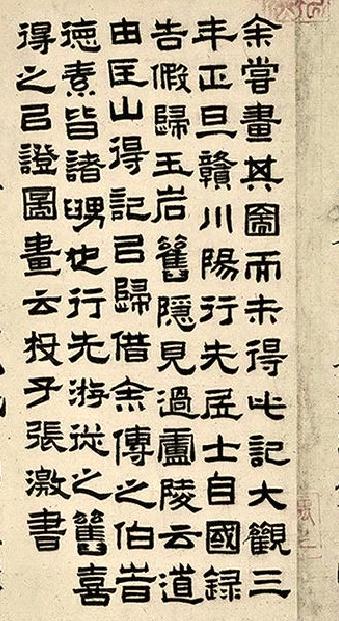 余嘗畫其圖而未得此記大觀三
年正旦贛川陽行先居士自國錄
告假歸玉岩舊隱見過廬陵云道
由匡山得記㠯歸借余傳之伯旹
德素皆諸舅也行先游從之舊喜
得之㠯證圖畫云投子張激書